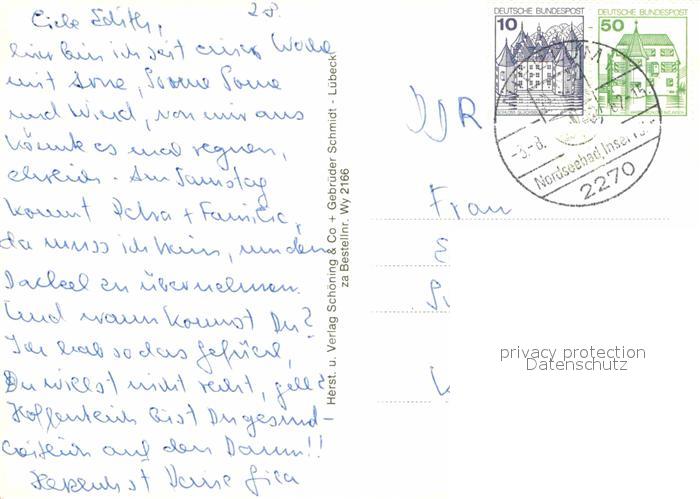 Liebe Edith, 28.
hier bin ich seit einer Woche
mit Sonne, Sonne
und Wind, von mir aus
könnte es mal regnen,
ehrlich. Am Samstag
kommt Petra + Familie,
da muss ich heim, um den
Dackel zu übernehmen.
Und wann kommst Du?
Ich hab so das Gefühl,
Du willst nicht recht, gell?
Hoffentlich bist Du gesund-
heitlich auf dem Damm!!
Herzlichst Deine
Herst. u. Verlag Schöning & Co + Gebrüder Schmidt - Lübeck
za Bestellnr. Wy 2166
DEUTSCHE BUNDESPOST
10
DEUTSCHE BUNDESPOST
50
-3.-8.
-15
Nordseebad, Insel
2270
DDR
Frau
privacy protection
Datenschutz